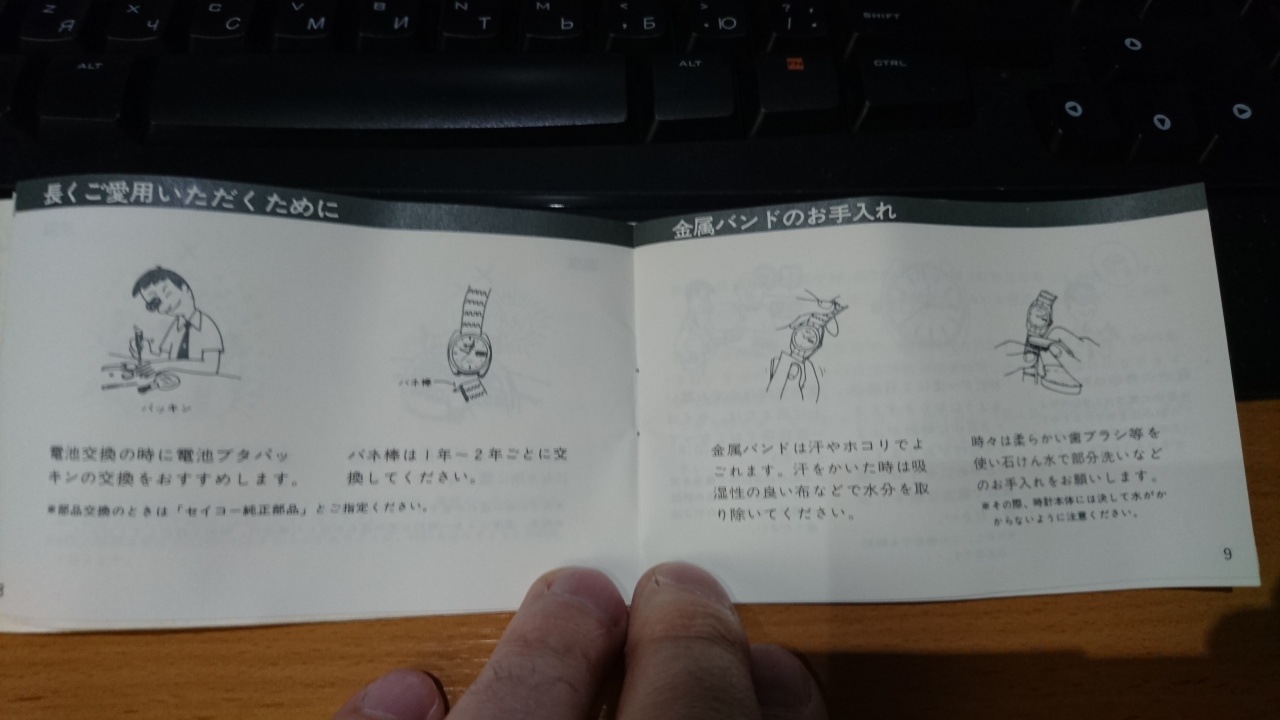 Z Я
X Ч
C С
V М
B И
N Т
M Ь
< , Б
> . Ю
? / .
SHIFT
ALT
ALT
FN
CTRL
長くご愛用いただくために
パッキン
電池交換の時に電池ブタパッ
キンの交換をおすすめします。
バネ棒
バネ棒は1年～2年ごとに交
換してください。
※部品交換のときは「セイコー純正部品」とご指定ください。
金属バンドのお手入れ
金属バンドは汗やホコリでよ
ごれます。汗をかいた時は吸
湿性の良い布などで水分を取
り除いてください。
時々は柔らかい歯ブラシ等を
使い石けん水で部分洗いなど
のお手入れをお願いします。
※その際、時計本体には決して水がか
からないように注意ください。
9